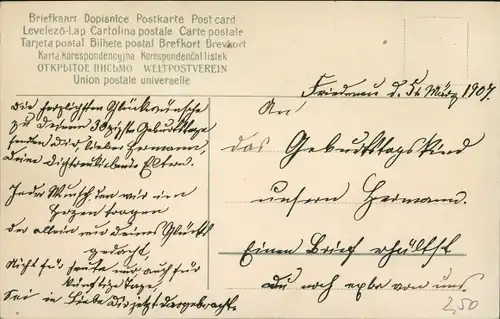 Briefkaart Dopisnice Postkarte Post card
Levelező-Lap Cartolina postale Carte postale
Tarjeta postal Bilhete postal Brefkort Brevkort
Karta korespondencyjna Korespondenční lístek
ОТКРЫТОЕ ПИСЬМО WELTPOSTVEREIN
Union postale universelle
Friedenau d. 5t März 1907.
Die herzlichsten Glückwünsche
zu Deinem 30zigsten Geburtstage
senden Dir, lieber Hermann,
Deine Dich treu liebende Eltern.
Jeder Wunsch, den wir im
Herzen tragen
der allein nur Deines Glücks
gedacht,
Nicht für heute nur auch für
künftige Tage,
Sei in Liebe Dir jetzt dargebracht.
An
das Geburtstagskind
unsern Hermann.
Einen Brief erhältst
Du noch extra von uns.
2,50